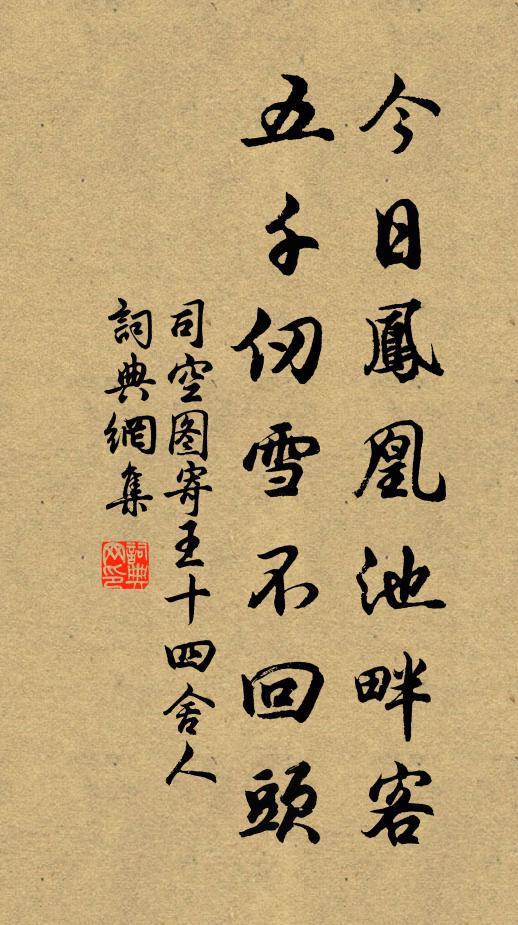 今日鳳凰池畔客
五千仞雪不回頭
司空图寄王十四舍人
詞典網集
詞典网印